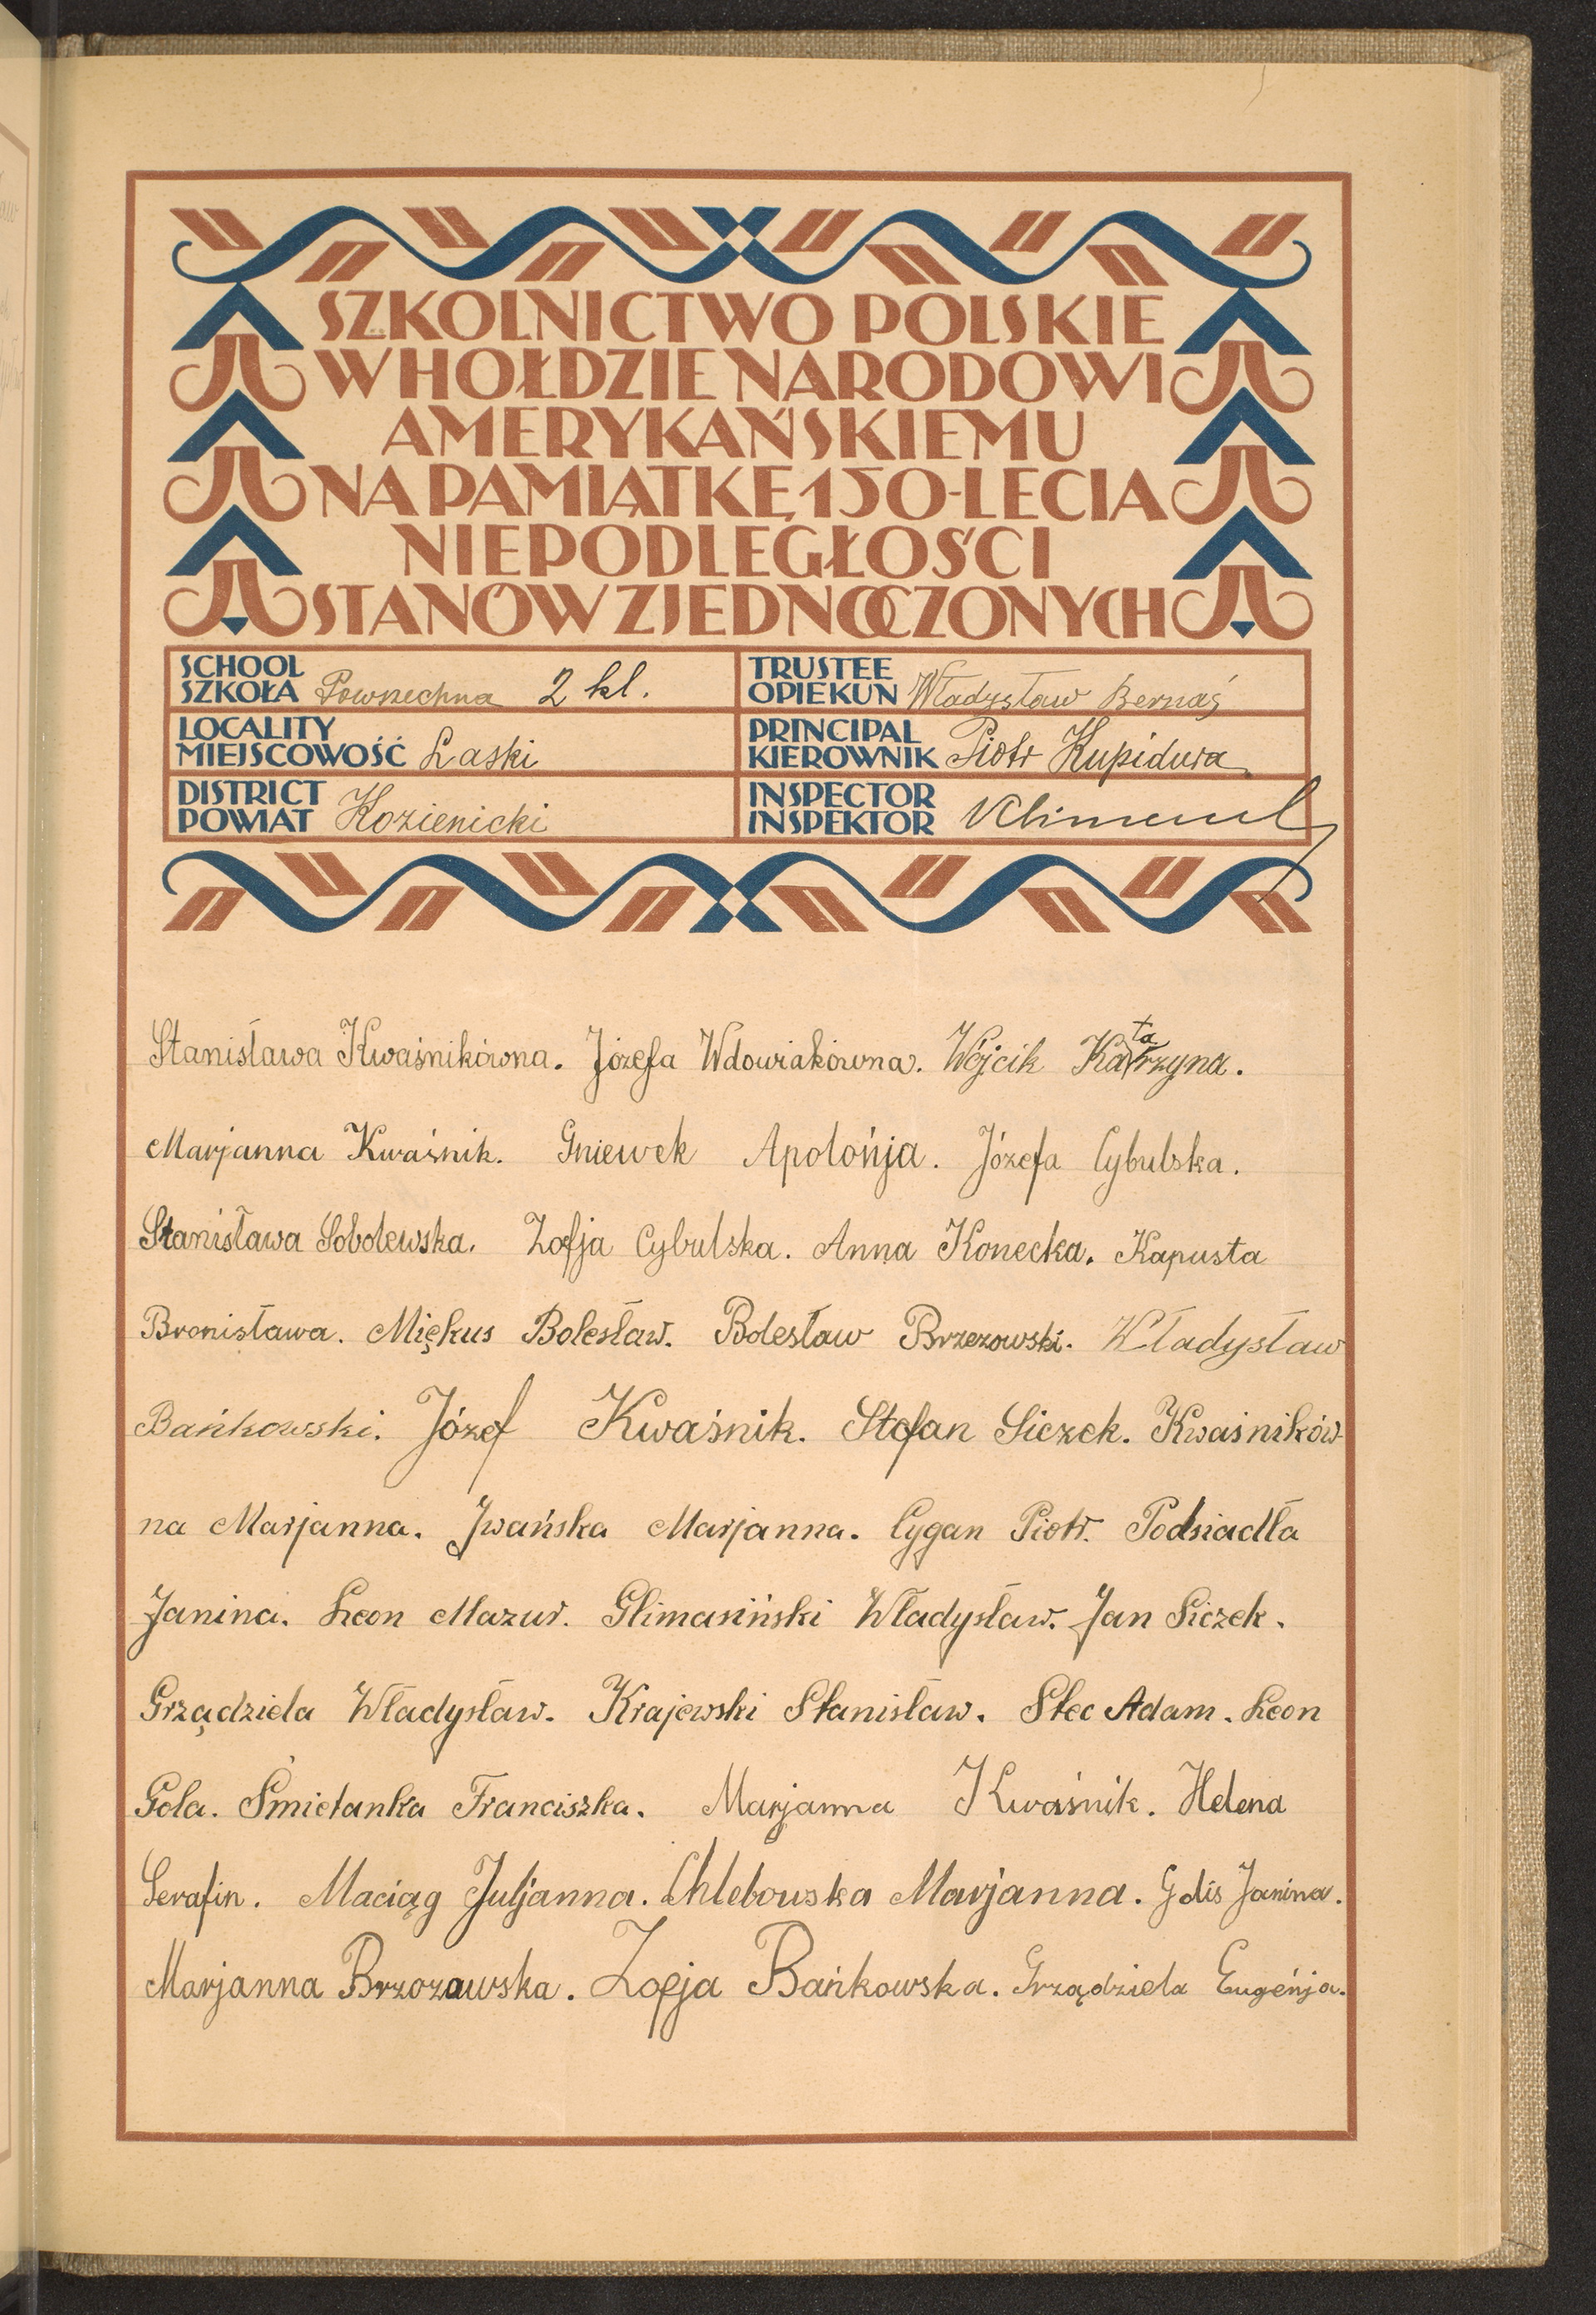 SZKOLNICTWO POLSKIE
W HOŁDZIE NARODOWI
AMERYKAŃSKIEMU
NA PAMIĄTKĘ 150-LECIA
NIEPODLEGŁOŚCI
STANÓW ZJEDNOCZONYCH
SCHOOL
SZKOŁA Powszechna 2 kl.
TRUSTEE
OPIEKUN Władysław Bernaś
LOCALITY
MIEJSCOWOŚĆ Laski
PRINCIPAL
KIEROWNIK Piotr Kupidura
DISTRICT
POWIAT Kozienicki
INSPECTOR
INSPEKTOR
Stanisława Kwaśnikówna. Józefa Wdowiakówna. Wójcik Katarzyna.
Marjanna Kwaśnik. Gniewek Apolońja. Józefa Cybulska.
Stanisława Sobolewska. Zofja Cybulska. Anna Konecka. Kapusta
Bronisława. Miękus Bolesław. Bolesław Brzezowski. Władysław
Bańkowski. Józef Kwaśnik. Stefan Siczek. Kwaśników-
na Marjanna. Iwańska Marjanna. Cygan Piotr. Podsiadła
Janina. Leon Mazur. Glimasiński Władysław. Jan Siczek.
Grządziela Władysław. Krajewski Stanisław. Stec Adam. Leon
Gola. Śmietanka Franciszka. Marjanna Kwaśnik. Helena
Serafin. Maciąg Juljanna. Chlebowska Marjanna. Gdis Janina.
Marjanna Brzozawska. Zofja Bańkowska. Grządziela Eugeńja.